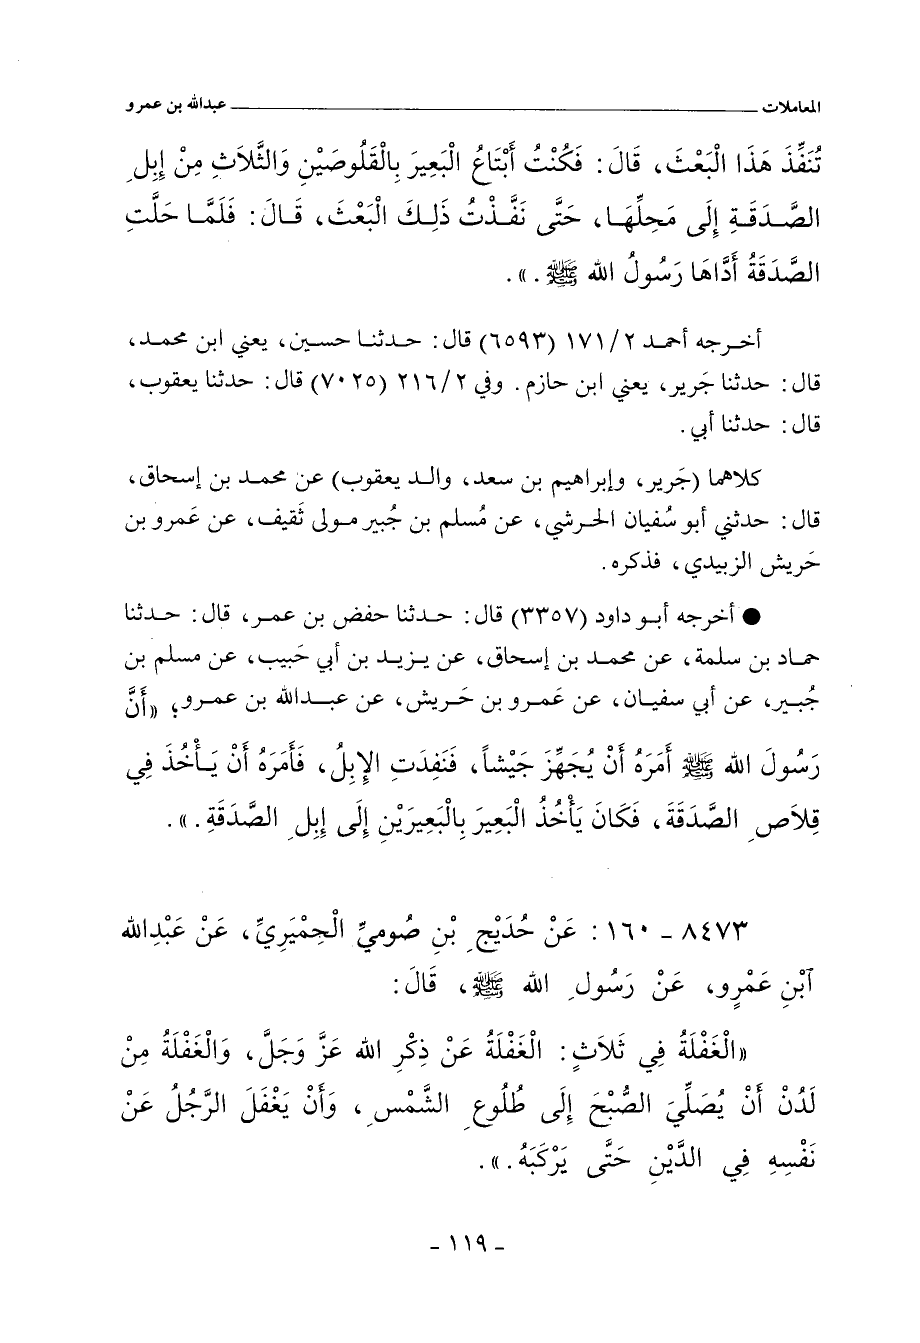 المعاملات ــــــــــــــــــــ عبدالله بن عمرو
تُنَفِّذَ هَذَا الْبَعْثَ، قَالَ: فَكُنْتُ أَبْتَاعُ الْبَعِيرَ بِالْقَلُوصَيْنِ وَالثَّلَاثِ مِنْ إِبِلِ
الصَّدَقَةِ إِلَى مَحِلِّهَا، حَتَّى نَفَّذْتُ ذَلِكَ الْبَعْثَ، قَالَ: فَلَمَّا حَلَّتِ
الصَّدَقَةُ أَدَّاهَا رَسُولُ الله ﷺ.».
أخرجه أحمد ٢/ ١٧١ (٦٥٩٣) قال: حدثنا حسين، يعني ابن محمد،
قال: حدثنا جَرير، يعني ابن حازم. وفي ٢/ ٢١٦ (٧٠٢٥) قال: حدثنا يعقوب،
قال: حدثنا أبي.
كلاهما (جَرير، وإبراهيم بن سعد، والد يعقوب) عن محمد بن إسحاق،
قال: حدثني أبو سُفيان الحرشي، عن مُسلم بن جُبير مولى ثَقيف، عن عَمرو بن
حَريش الزبيدي، فذكره.
● أخرجه أبو داود (٣٣٥٧) قال: حدثنا حفض بن عمر، قال: حدثنا
حماد بن سلمة، عن محمد بن إسحاق، عن يزيد بن أبي حَبيب، عن مسلم بن
جُبير، عن أبي سفيان، عن عَمرو بن حَريش، عن عبدالله بن عمرو؛ «أَنَّ
رَسُولَ الله ﷺ أَمَرَهُ أَنْ يُجَهِّزَ جَيْشاً، فَنَفِدَتِ الإِبِلُ، فَأَمَرَهُ أَنْ يَأْخُذَ فِي
قِلاَصِ الصَّدَقَةَ، فَكَانَ يَأْخُذُ الْبَعِيرَ بِالْبَعِيرَيْنِ إِلَى إِبِلِ الصَّدَقَةِ.».
٨٤٧٣ ـ ١٦٠: عَنْ حُدَيْجِ بْنِ صُومِيِّ الْحِمْيَرِيِّ، عَنْ عَبْدِالله
آبْنِ عَمْرٍو، عَنْ رَسُولِ الله ﷺ، قَالَ:
«الْغَفْلَةُ فِي ثَلاَثٍ: الْغَفْلَةُ عَنْ ذِكْرِ الله عَزَّ وَجَلَّ، وَالْغَفْلَةُ مِنْ
لَدُنْ أَنْ يُصَلِّيَ الصُّبْحَ إِلَى طُلُوعِ الشَّمْسِ، وَأَنْ يَغْفَلَ الرَّجُلُ عَنْ
نَفْسِهِ فِي الدَّيْنِ حَتَّى يَرْكَبَهُ.».
- ١١٩ -